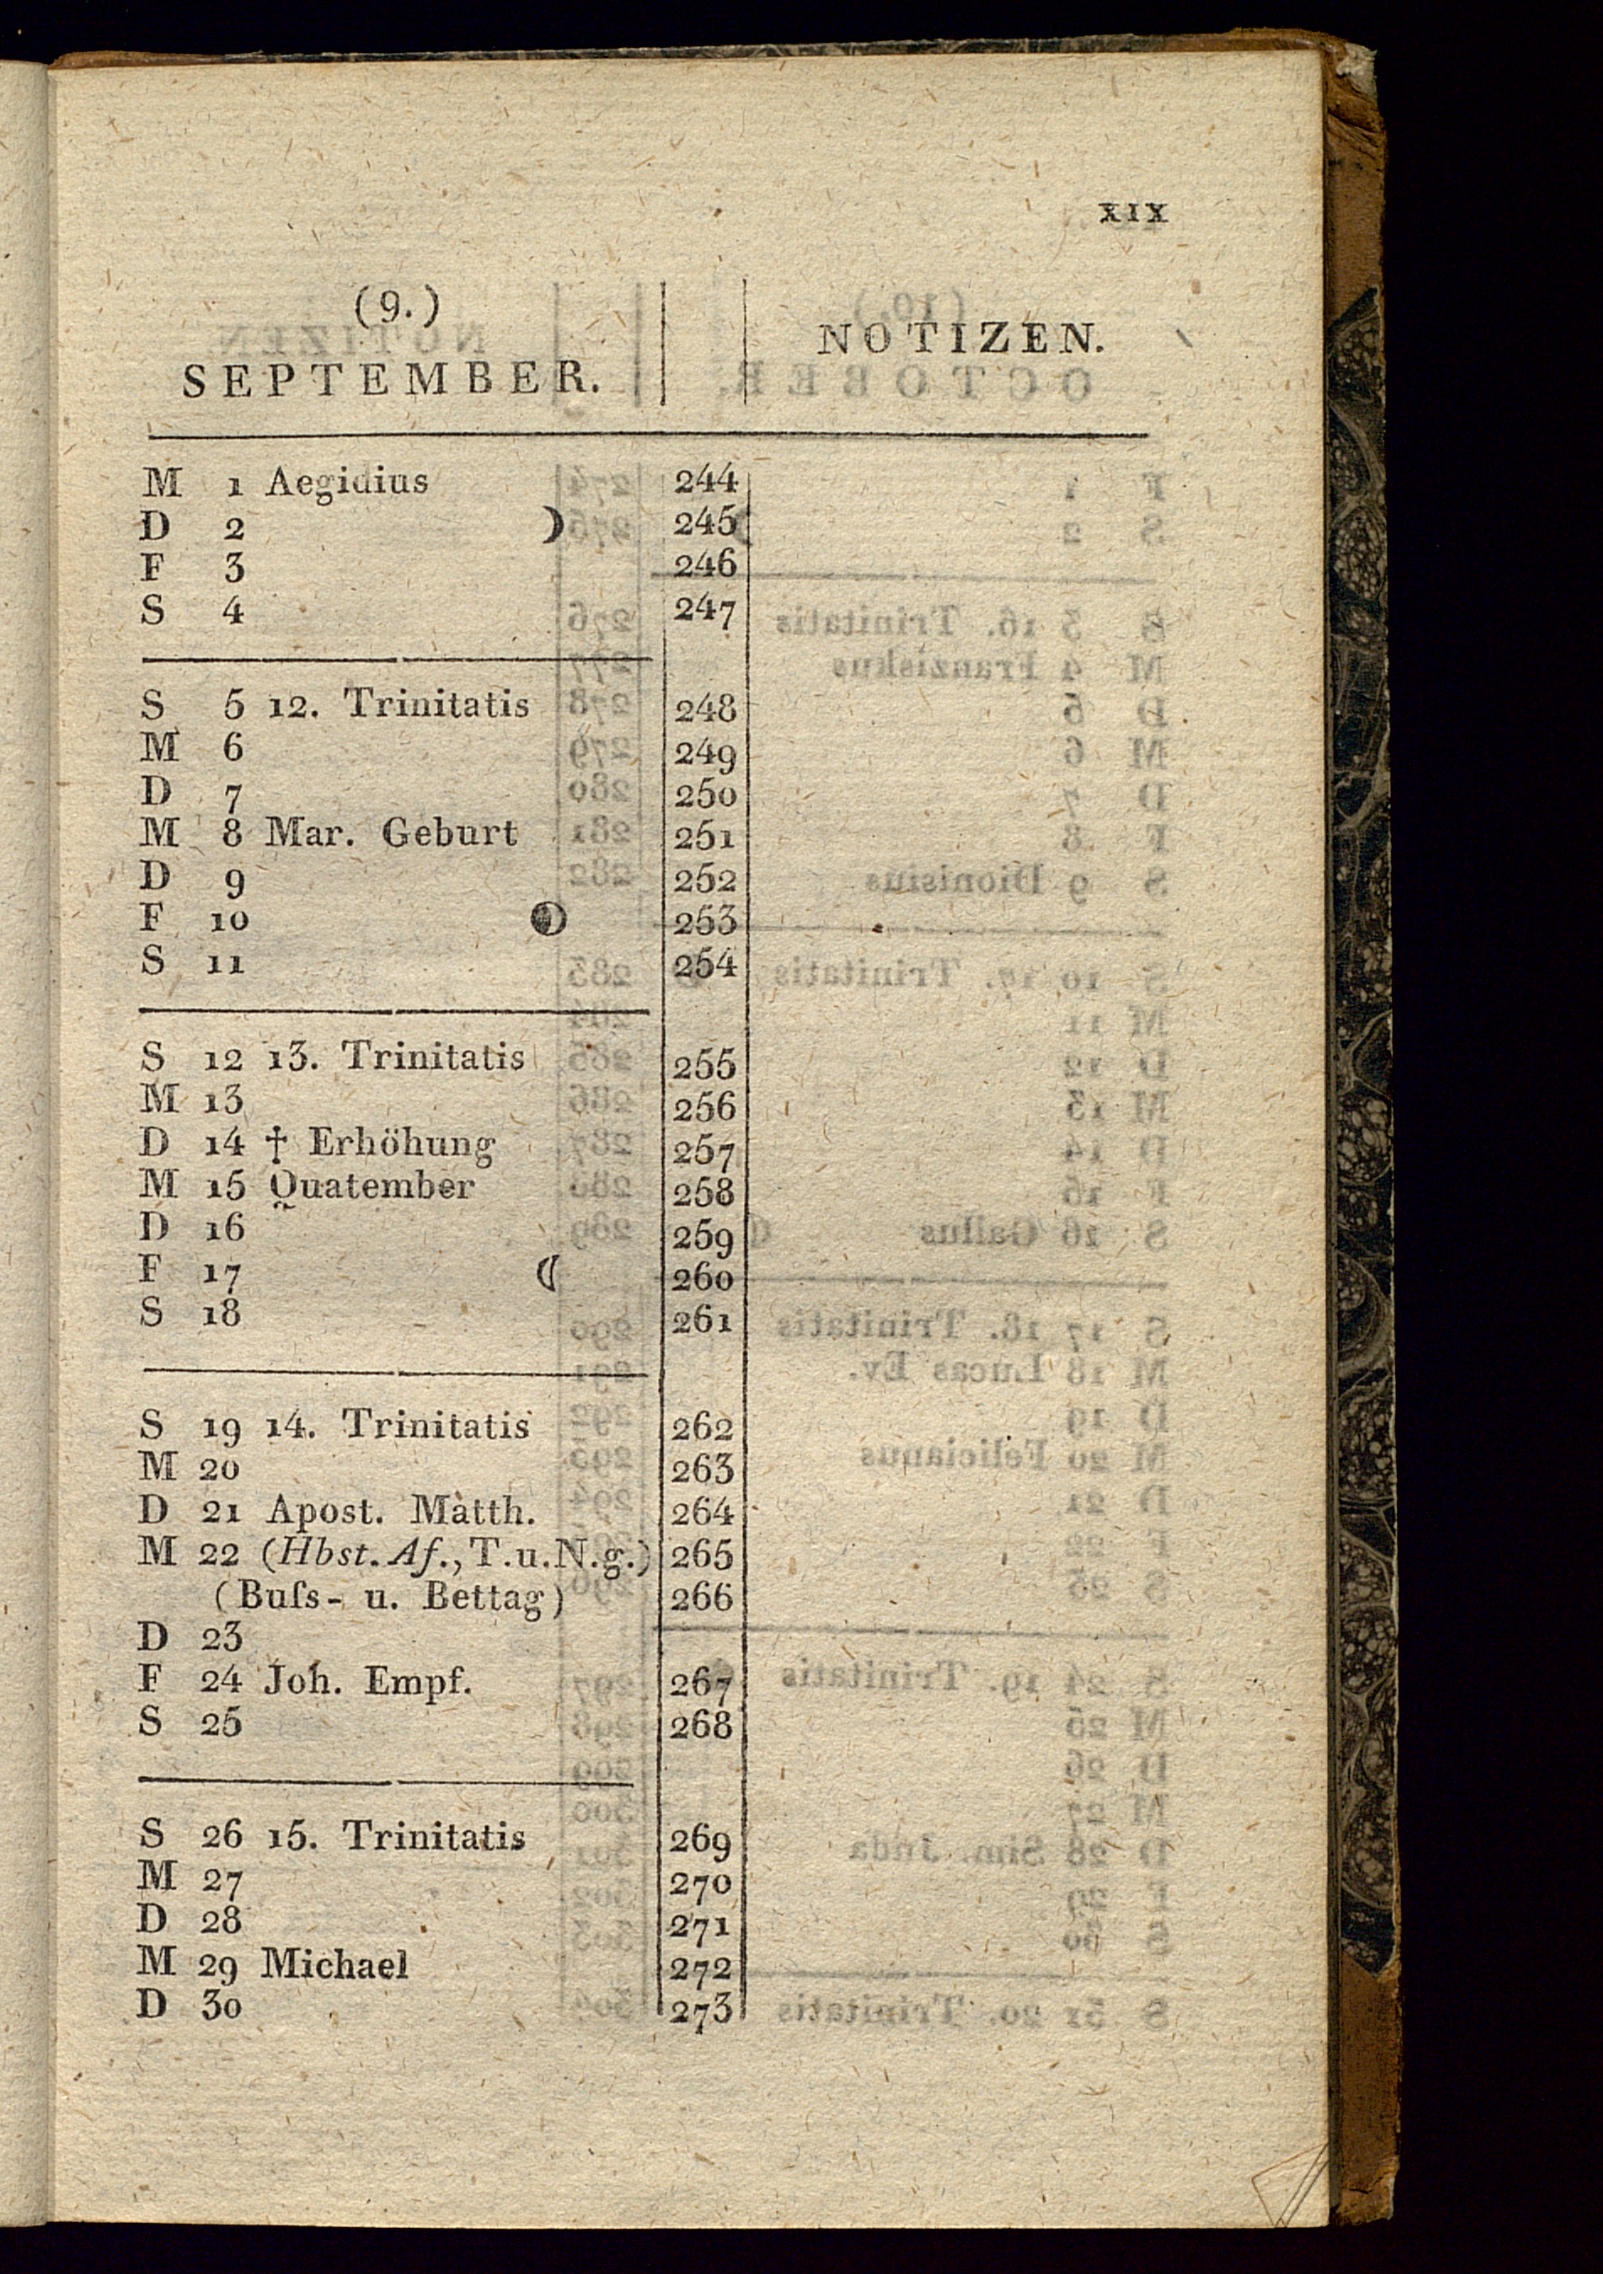 XIX
(9.)
SEPTEMBER.
NOTIZEN.
M 1 Aegidius 244
D 2 ☽ 245
F 3 246
S 4 247
S 5 12. Trinitatis 248
M 6 249
D 7 250
M 8 Mar. Geburt 251
D 9 252
F 10 253
S 11 254
S 12 13. Trinitatis 255
M 13 256
D 14 † Erhöhung 257
M 15 Quatember 258
D 16 259
F 17 ☾ 260
S 18 261
S 19 14. Trinitatis 262
M 20 263
D 21 Apost. Matth. 264
M 22 (Hbst. Af., T. u. N. g.) 265
(Buſs- u. Bettag) 266
D 23
F 24 Joh. Empf. 267
S 25 268
S 26 15. Trinitatis 269
M 27 270
D 28 271
M 29 Michael 272
D 30 273